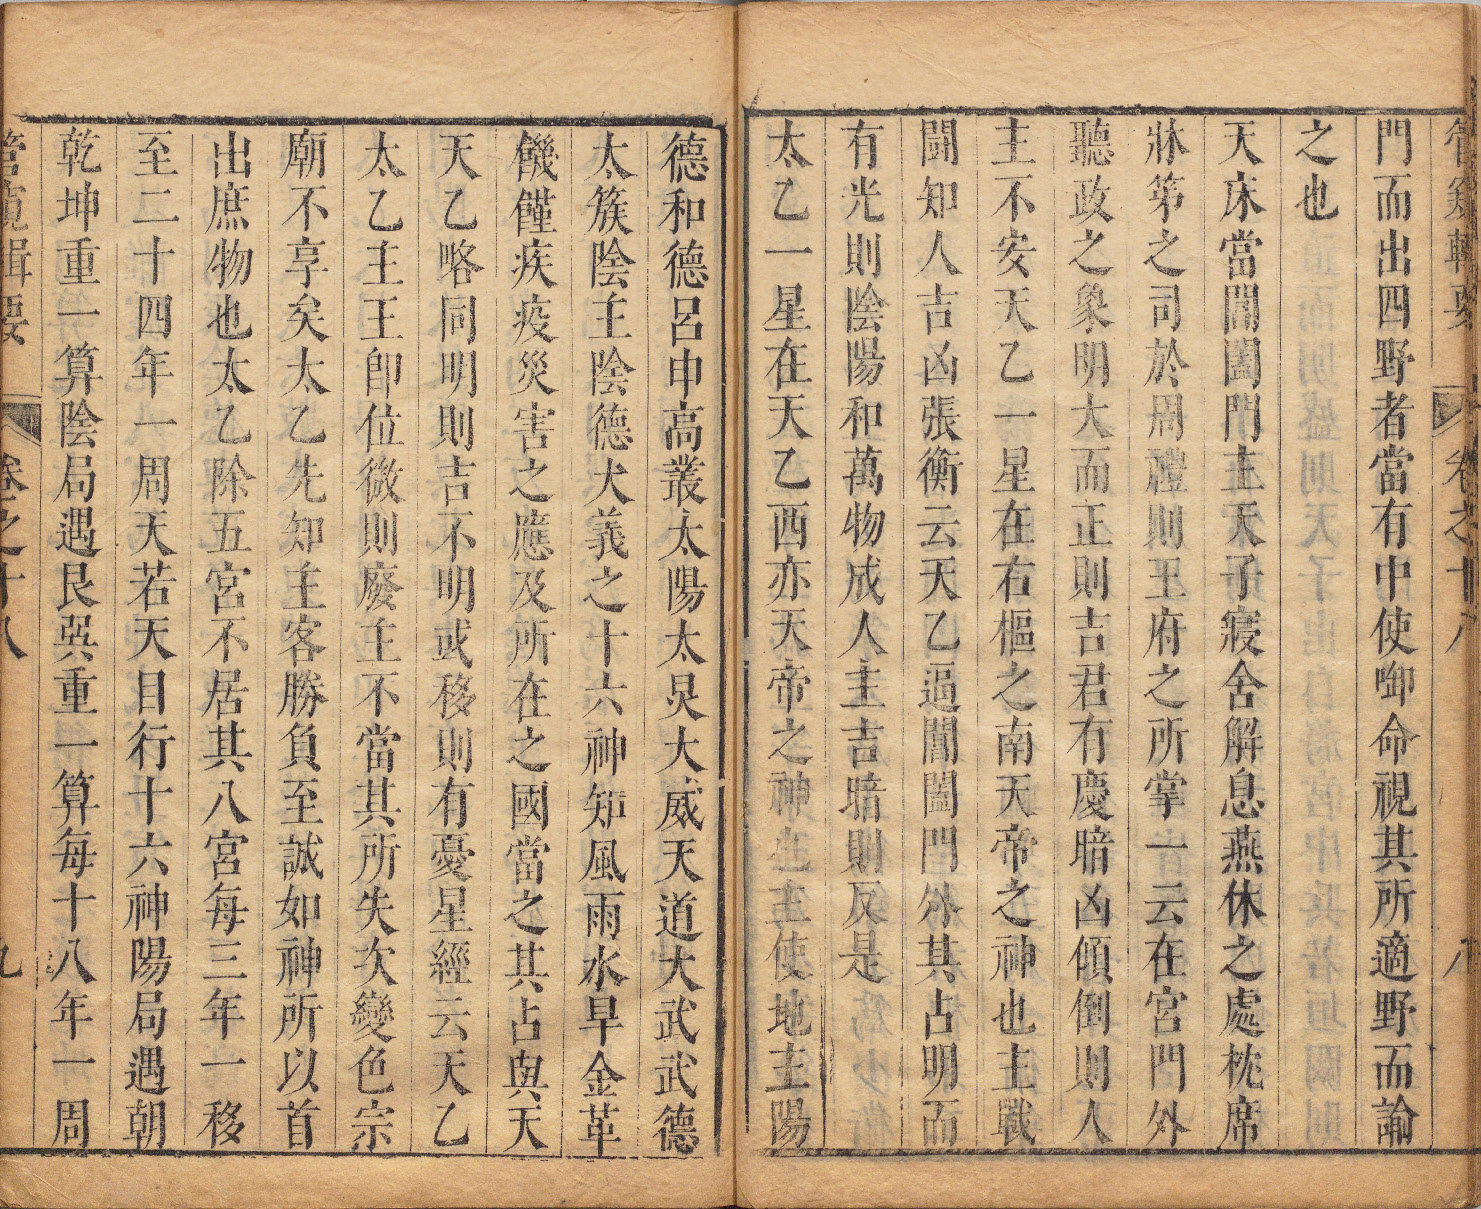 管窺輯要 卷之十八 八
門而出四野者當有中使啣命視其所適野而諭
之也
天床當閶闔門主天子寢舍解息燕休之處枕席
牀笫之司於周禮則王府之所掌一云在宮門外
聽政之象明大而正則吉君有慶暗凶傾倒則人
主不安天乙一星在右樞之南天帝之神也主戰
鬪知人吉凶張衡云天乙逼閶闔門外其占明而
有光則陰陽和萬物成人主吉暗則反是
太乙一星在天乙西亦天帝之神也主使地主陽
德和德呂申高叢太陽太炅大威天道大武武德
太簇陰主陰德大義之十六神知風雨水旱金革
饑饉疾疫災害之應及所在之國當之其占與天
天乙略同明則吉不明或移則有憂星經云天乙
太乙主王卽位微則廢主不當其所失次變色宗
廟不享矣太乙先知主客勝負至誠如神所以首
出庶物也太乙除五宮不居其八宮每三年一移
至二十四年一周天若天目行十六神陽局遇朝
乾坤重一算陰局遇艮㢲重一算每十八年一周
管窺輯要 卷之十八 九